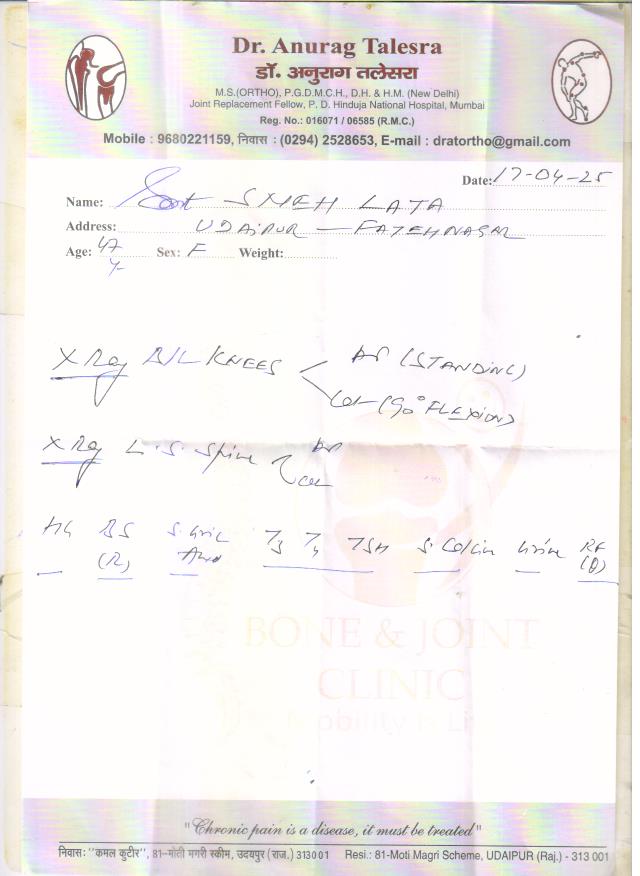 Dr. Anurag Talesra
डॉ. अनुराग तलेसरा
M.S.(ORTHO), P.G.D.M.C.H., D.H. & H.M. (New Delhi)
Joint Replacement Fellow, P. D. Hinduja National Hospital, Mumbai
Reg. No.: 016071 / 06585 (R.M.C.)
Mobile : 9680221159, निवास : (0294) 2528653, E-mail : dratortho@gmail.com
Date: 17-04-25
Name: SNEH LATA
Address: UDAIPUR — FATEHNAGAR
Age: 47 Sex: F Weight:
y
X Ray B/L KNEES AP (STANDING)
Lat (90° FLEXION)
X Ray L.S. Spine AP
Lat
Hb BS S. Uric T3 T4 TSH S. Calcium Urine RF
(R) Acid (Q)
BONE & JOINT
CLINIC
"Chronic pain is a disease, it must be treated"
निवास: "कमल कुटीर", 81-मोती मगरी स्कीम, उदयपुर (राज.) 313001 Resi.: 81-Moti Magri Scheme, UDAIPUR (Raj.) - 313 001